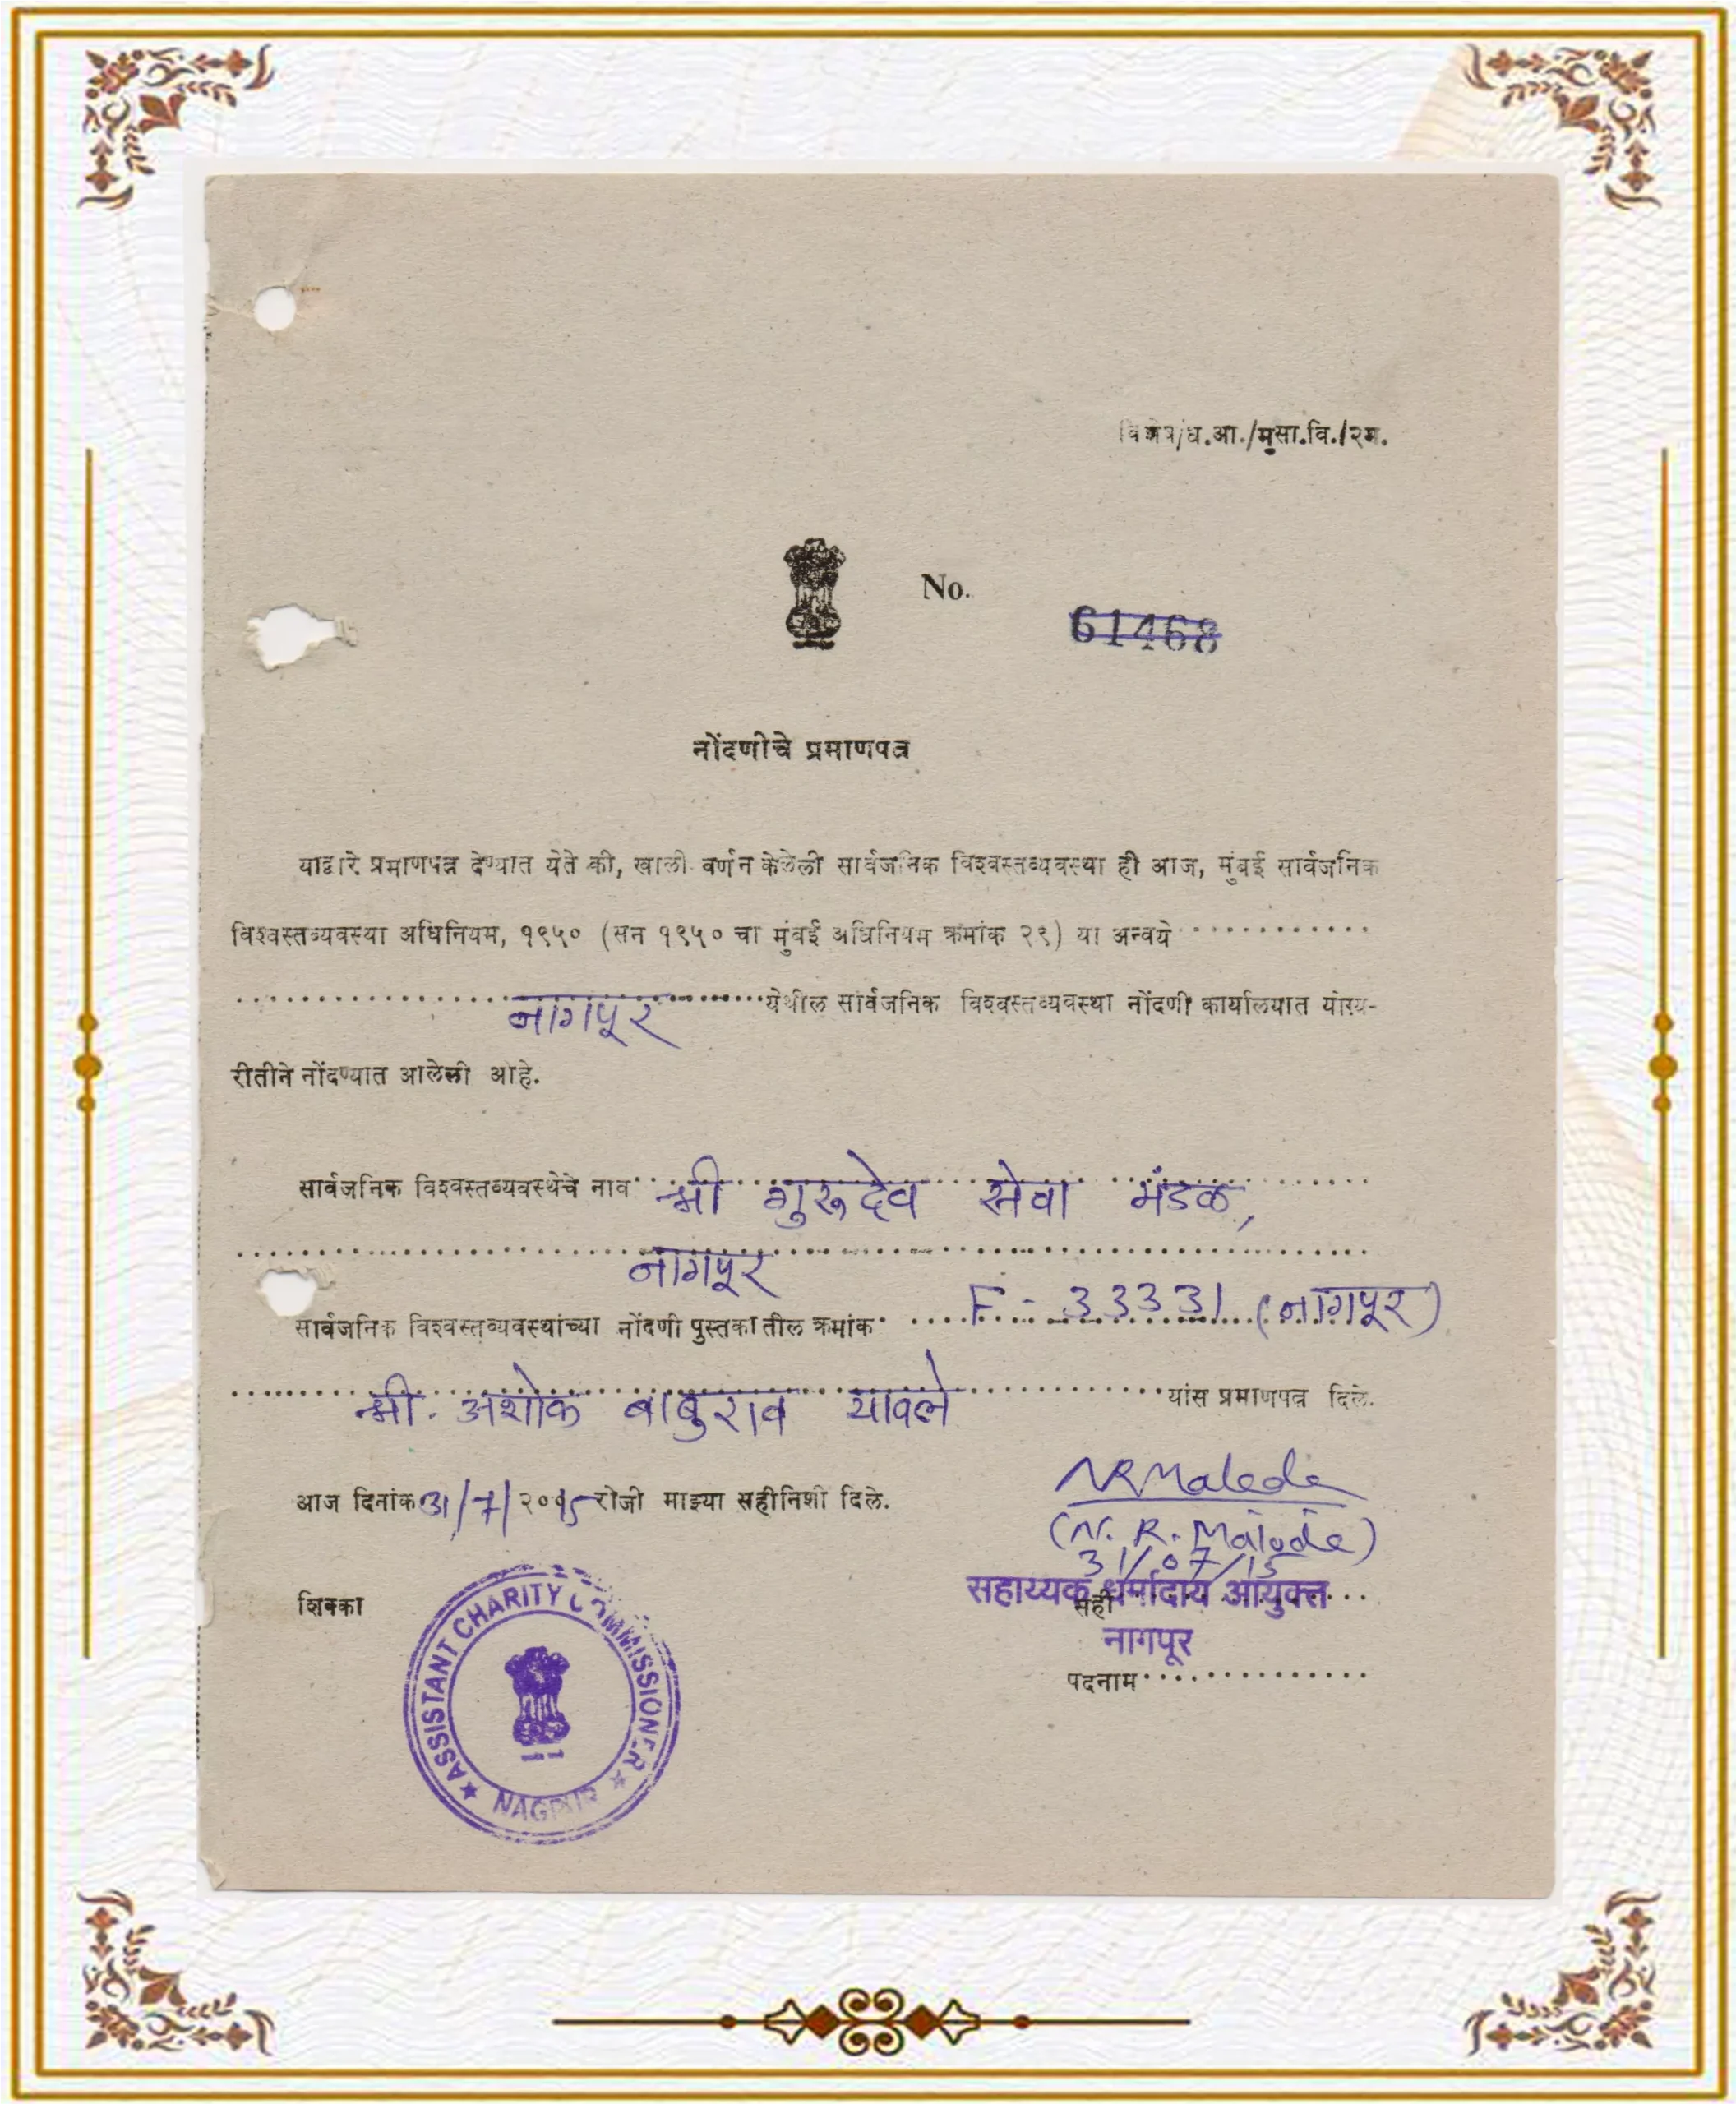 ध.आ./मुसा.वि./२म.
No.
61468
नोंदणीचे प्रमाणपत्र
याद्वारे प्रमाणपत्र देण्यात येते की, खाली वर्णन केलेली सार्वजनिक विश्वस्तव्यवस्था ही आज, मुंबई सार्वजनिक
विश्वस्तव्यवस्था अधिनियम, १९५० (सन १९५० चा मुंबई अधिनियम क्रमांक २९) या अन्वये
नागपूर येथील सार्वजनिक विश्वस्तव्यवस्था नोंदणी कार्यालयात योग्य-
रीतीने नोंदण्यात आलेली आहे.
सार्वजनिक विश्वस्तव्यवस्थेचे नाव श्री गुरुदेव सेवा मंडळ,
नागपूर
सार्वजनिक विश्वस्तव्यवस्थांच्या नोंदणी पुस्तकातील क्रमांक F - 33331 (नागपूर)
श्री. अशोक बाबुराव यावले यांस प्रमाणपत्र दिले.
आज दिनांक 31/7/२०15 रोजी माझ्या सहीनिशी दिले.
NRMalode
(N. R. Malode)
31/07/15
शिक्का
सहाय्यक धर्मादाय आयुक्त
सही
नागपूर
पदनाम
ASSISTANT CHARITY COMMISSIONER
NAGPUR